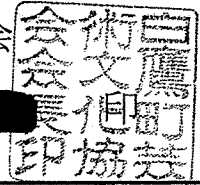 白鷹町芸
術文化協
会会長印